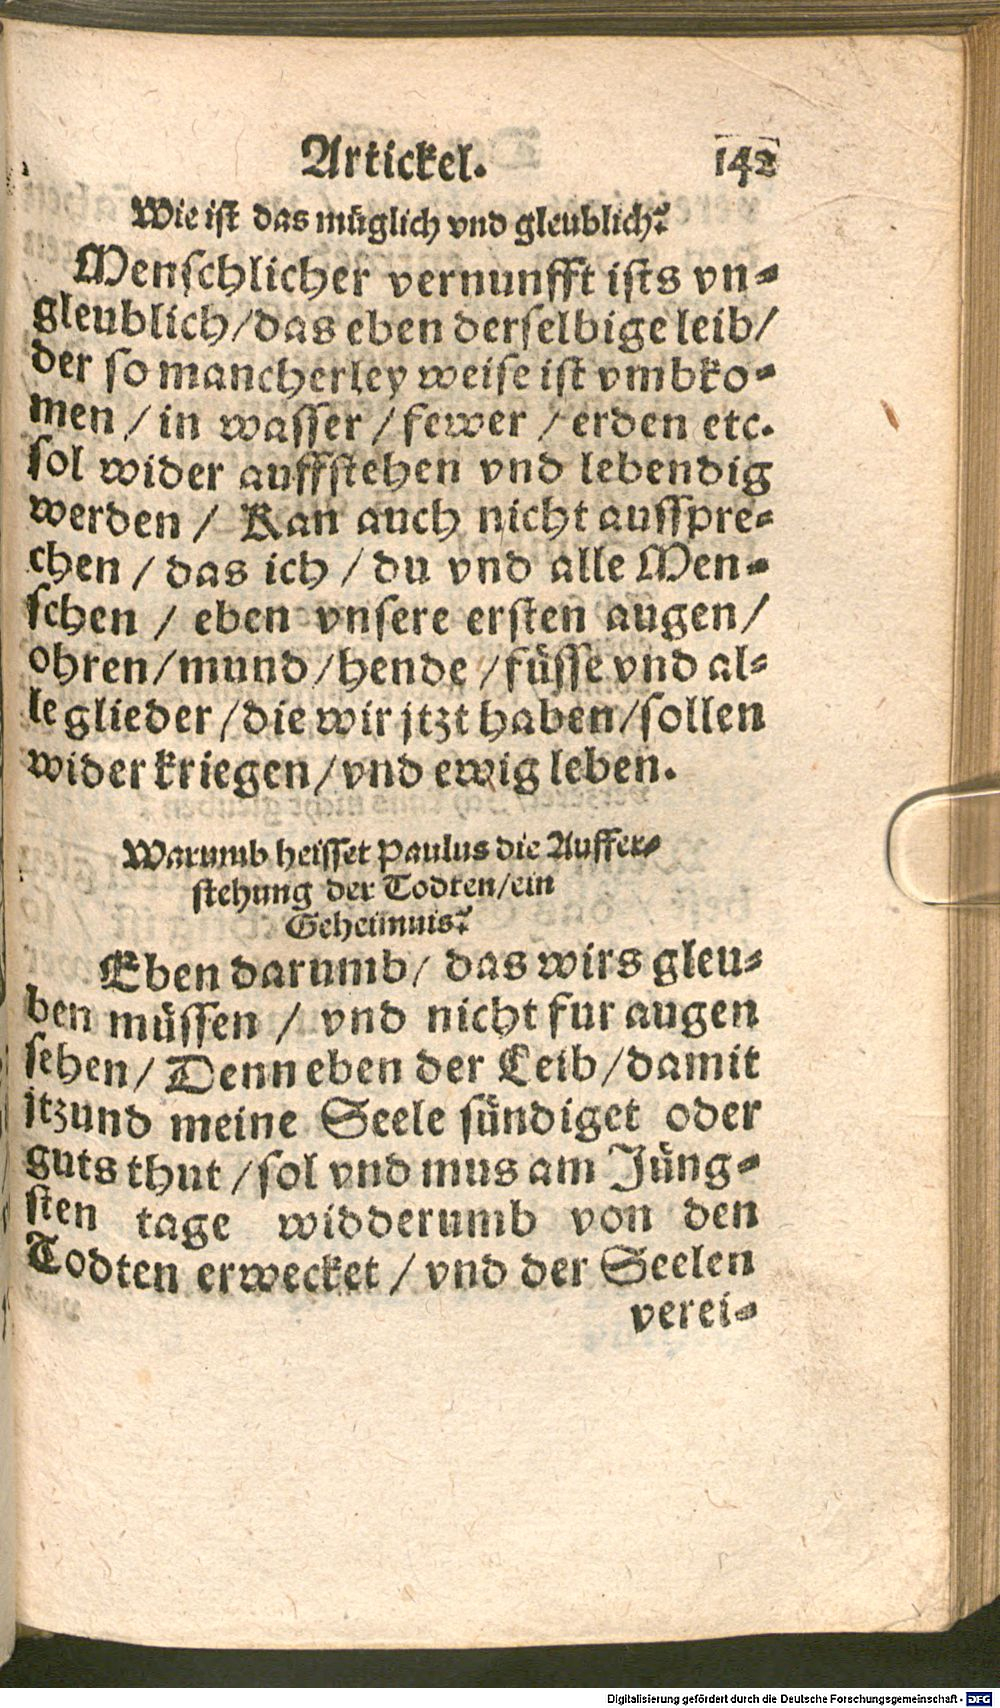 Artickel. 142
Wie ist das müglich vnd gleublich?
Menschlicher vernunfft ists vn-
gleublich/das eben derselbige leib/
der so mancherley weise ist vmbko-
men / in wasser / fewer / erden etc.
sol wider auffstehen vnd lebendig
werden / Kan auch nicht ausspre-
chen / das ich / du vnd alle Men-
schen / eben vnsere ersten augen/
ohren/mund/hende /füsse vnd al-
le glieder /die wir jtzt haben/sollen
wider kriegen/vnd ewig leben.
Warumb heisset Paulus die Auffer-
stehung der Todten/ein
Geheimnis?
Eben darumb/ das wirs gleu-
ben müssen / vnd nicht fur augen
sehen/ Denn eben der Leib/damit
jtzund meine Seele sündiget oder
guts thut /sol vnd mus am Jüng-
sten tage widderumb von den
Todten erwecket / vnd der Seelen
verei-
Digitalisierung gefördert durch die Deutsche Forschungsgemeinschaft - DFG